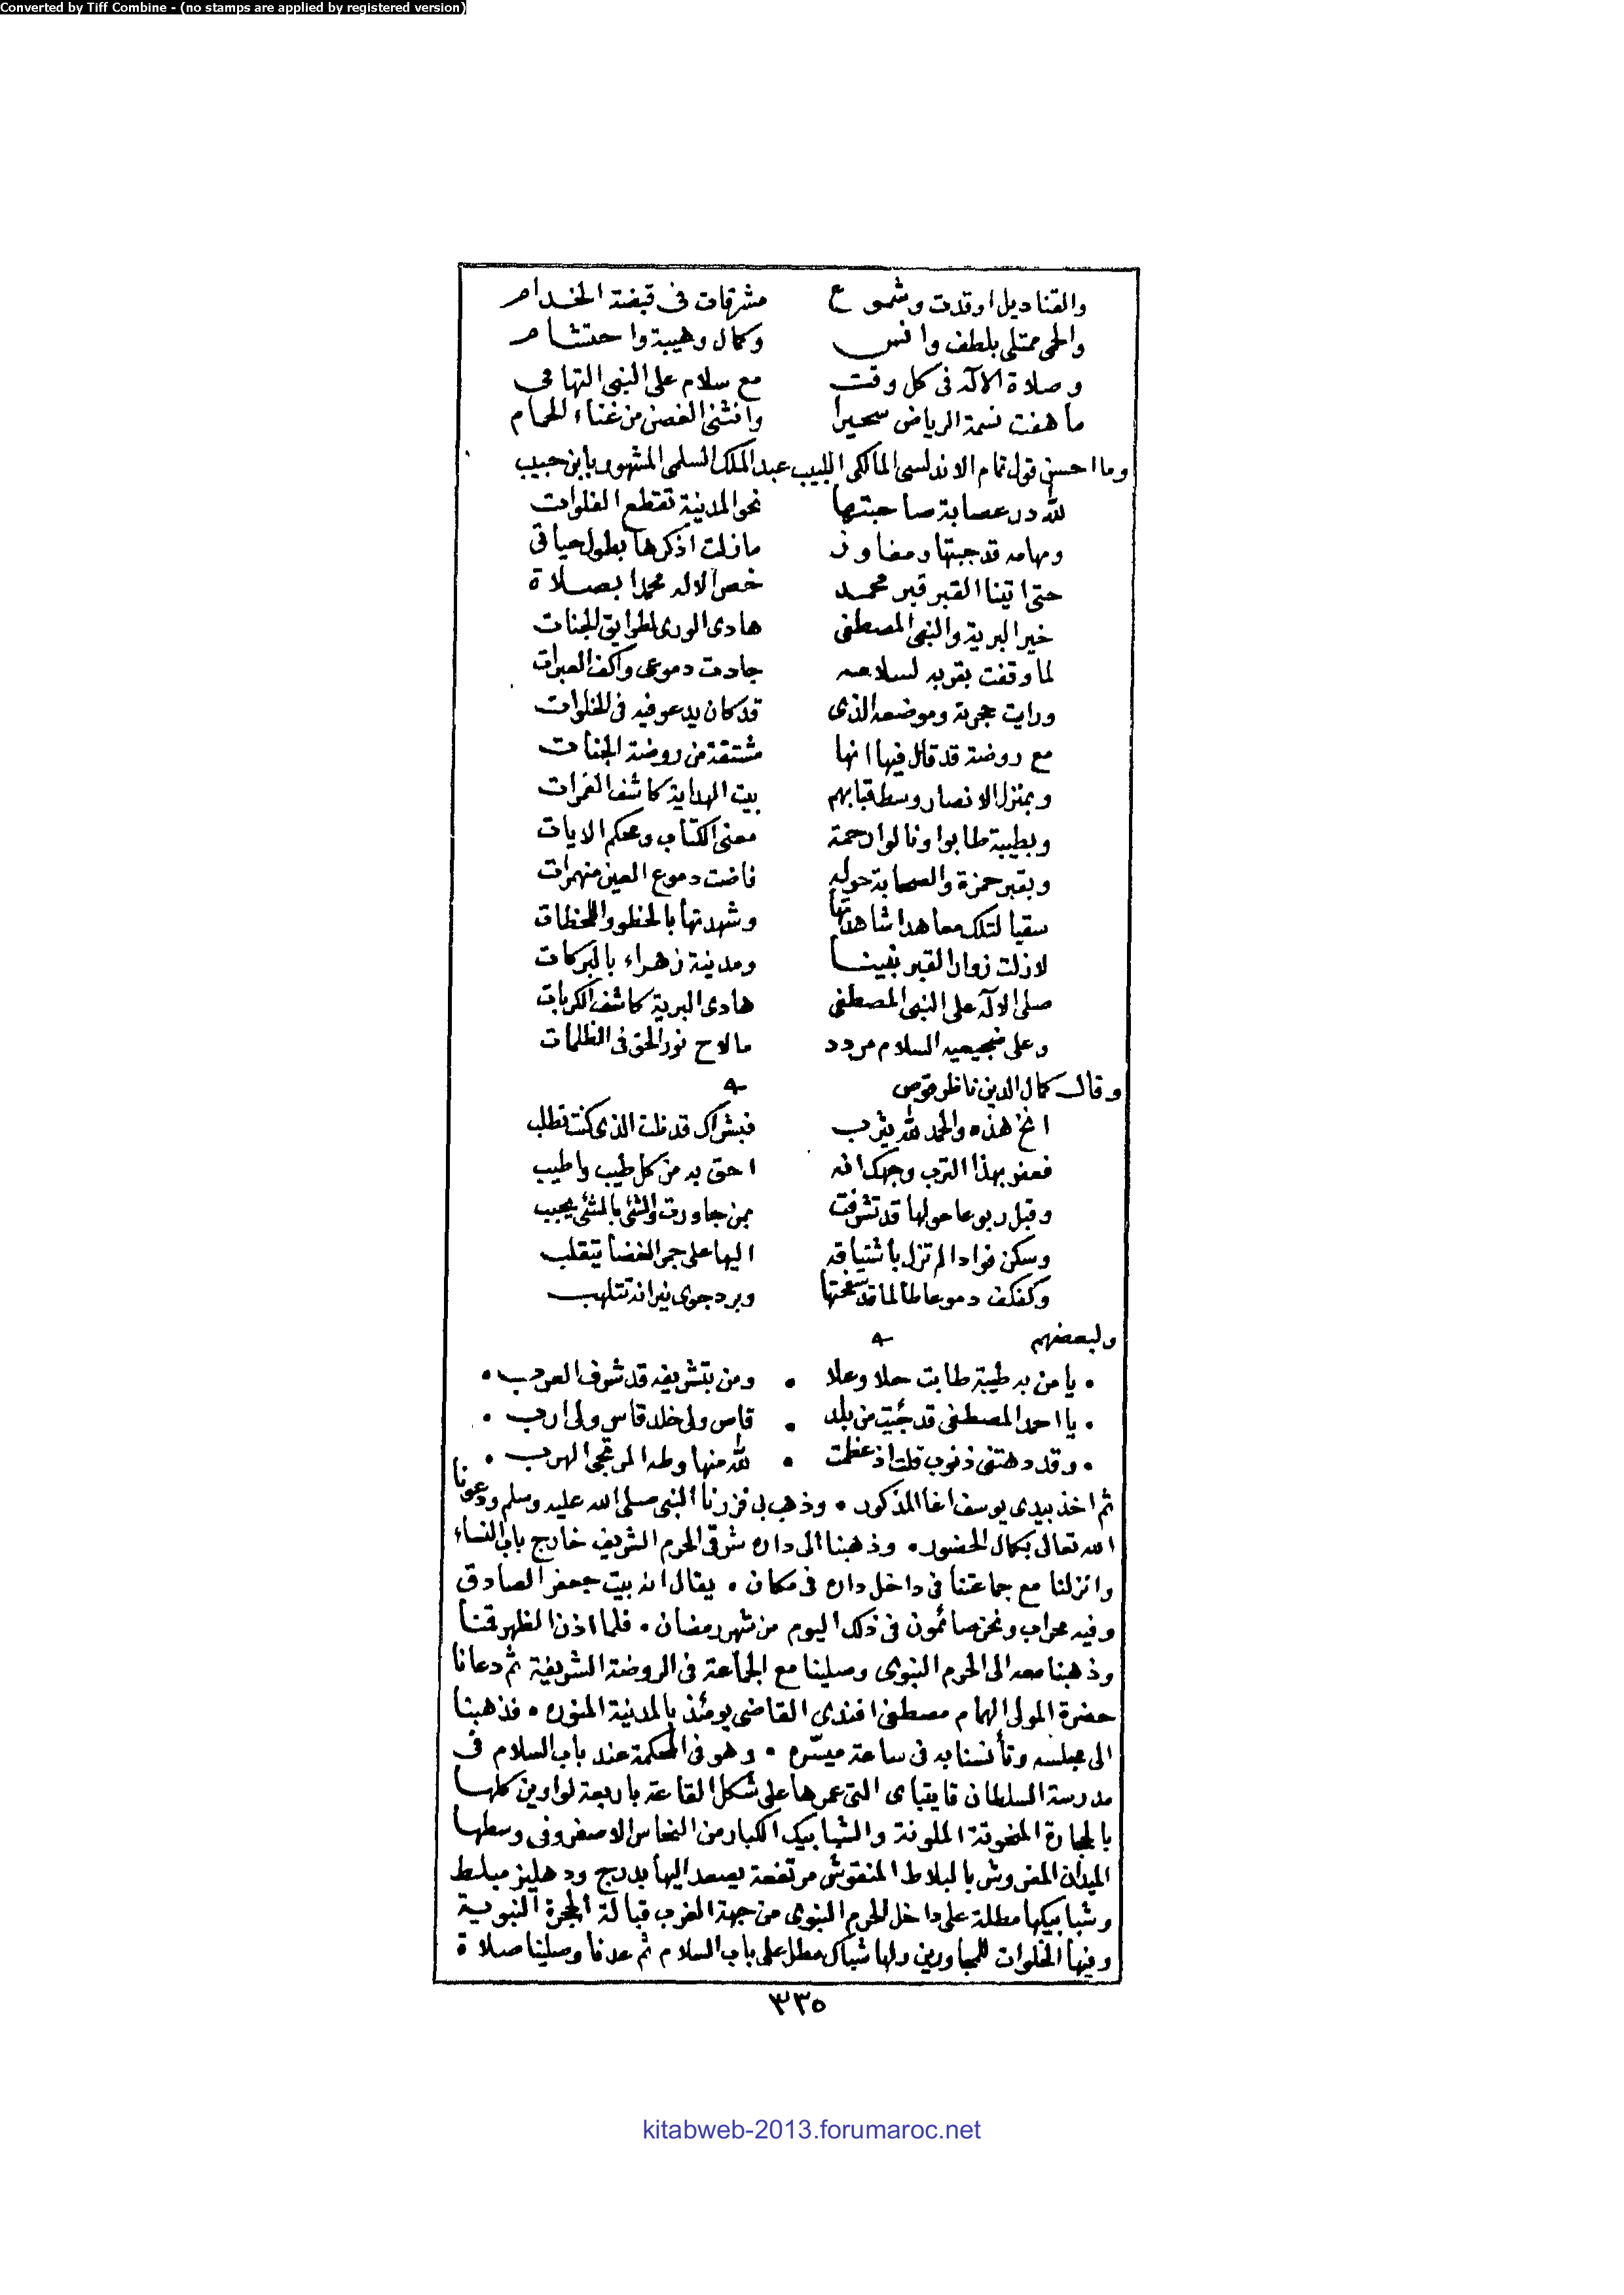 Converted by Tiff Combine - (no stamps are applied by registered version)
والقناديل اوقدت وشموع مشرقات فى قبضة الخدام
والحى ممتلى بلطف وانس وكمال وهيبة واحتشام
وصلاة الاله فى كل وقت مع سلام على النبى التهامى
ما هفت نسمة الرياض سحيرا وانثنى الغصن من غناء الحمام
وما احسن قول تمام الاندلسى المالكى اللبيب عبد الملك السلمى المشهور بابن حبيب
لله در عصابة صاحبتها نحو المدينة تقطع الفلوات
ومهامه قد جبتها ومفاوز مازلت اذكرها بطول حياتى
حتى اتينا القبر قبر محمد خص الاله محمدا بصلاة
خير البرية والنبى المصطفى هادى الورى لطرايق الجنات
لما وقفت بقربه لسلامه جادت دموعى واكف العبرات
ورايت حجرته وموضعه الذى قد كان يدعو فيه فى الخلوات
مع روضة قد قال فيها انها مشتقة من روضة الجنات
وبمنزل الانصار وسط قبابهم بيت الهداية كاشف الغمرات
وبطيبة طابوا ونالوا رحمة معنى الكتاب ومحكم الايات
وبقبر حمزة والصحابة حوله فاضت دموع العين منهمرات
سقيا لتلك معاهدا شاهدتها وشهدتها بالخطو واللحظات
لازلت زوار القبر نبينا ومدينة زهراء بالبركات
صلى الاله على النبى المصطفى هادى البرية كاشف الكربات
وعلى ضجيعيه السلام مردد مالاح نور الحق فى الظلمات
وقال كمال الدين ناظر قوص
انخ هذه والحمد لله يثرب فبشراك قد نلت الذى كنت تطلب
فعفر بهذا الترب وجهك انه احق به من كل طيب واطيب
وقبل ربوعا حولها قد تشرفت بمن جاورت والشئ بالشئ يحبب
وسكن فوادا لم تزل باشتياقه اليها على جمر الغضا يتقلب
وكفكف دموعا طالما قد سفحتها وبرد جوى نيرانه تتلهب
ولبعضهم
• يا من به طيبة طابت حلا وعلا • ومن بتشريفه قد شرف العرب •
• يا احمد المصطفى قد جئت من بلد • قاس ولى خلد قاس ولى ارب •
• وقد دهتنى ذنوب قلت اذ عظمت • لله منها وطه المرتجى الهرب •
ثم اخذ بيدى يوسف اغا المذكور • وذهب بى فزرنا النبى صلى الله عليه وسلم ودعونا
الله تعالى بكمال الحضور • وذهبنا الى داره شرقى الحرم الشريف خارج باب النساء
وانزلنا مع جماعتنا فى داخل داره فى مكان • يقال انه بيت جعفر الصادق
وفيه محراب ونحن صائمون فى ذلك اليوم من شهر رمضان • فلما اذن الظهر قمنا
وذهبنا معه الى الحرم النبوى وصلينا مع الجماعة فى الروضة الشريفة ثم دعانا
حضرة المولى الهمام مصطفى افندى القاضى يومئذ بالمدينة المنوره • فذهبنا
الى مجلسه وتأنسنا به فى ساعة ميسّره • وهو فى المحكمة عند باب السلام فى
مدرسة السلطان قايتباى التى عمرها على شكل القاعة باربعة لواوين كلها
بالحجارة المنحوتة الملونة والشبابيك الكبار من النحاس الاصفر وفى وسطها
الميدان المفروش بالبلاط المنقوش مرتفعة يصعد اليها بدرج ودهليز مبلط
وشبابيكها مطلة على داخل الحرم النبوى من جهة الغرب قبالة الحجرة النبوية
وفيها الخلوات للمجاورين ولها شباك مطل على باب السلام ثم عدنا وصلينا صلاة
٣٣٥
kitabweb-2013.forumaroc.net